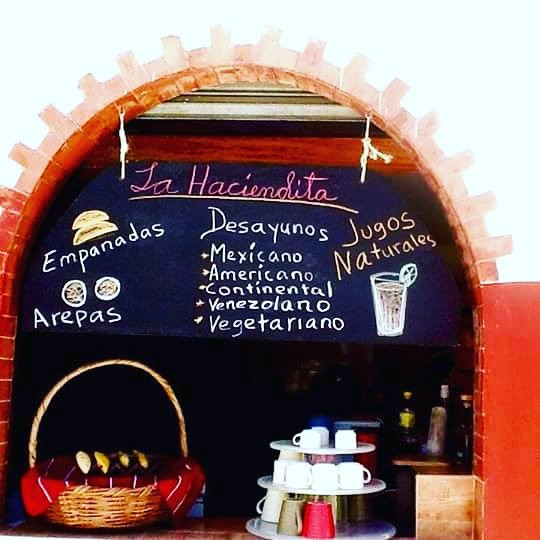 La Haciendita
Empanadas
Arepas
Desayunos
Mexicano
Americano
Continental
Venezolano
Vegetariano
Jugos
Naturales